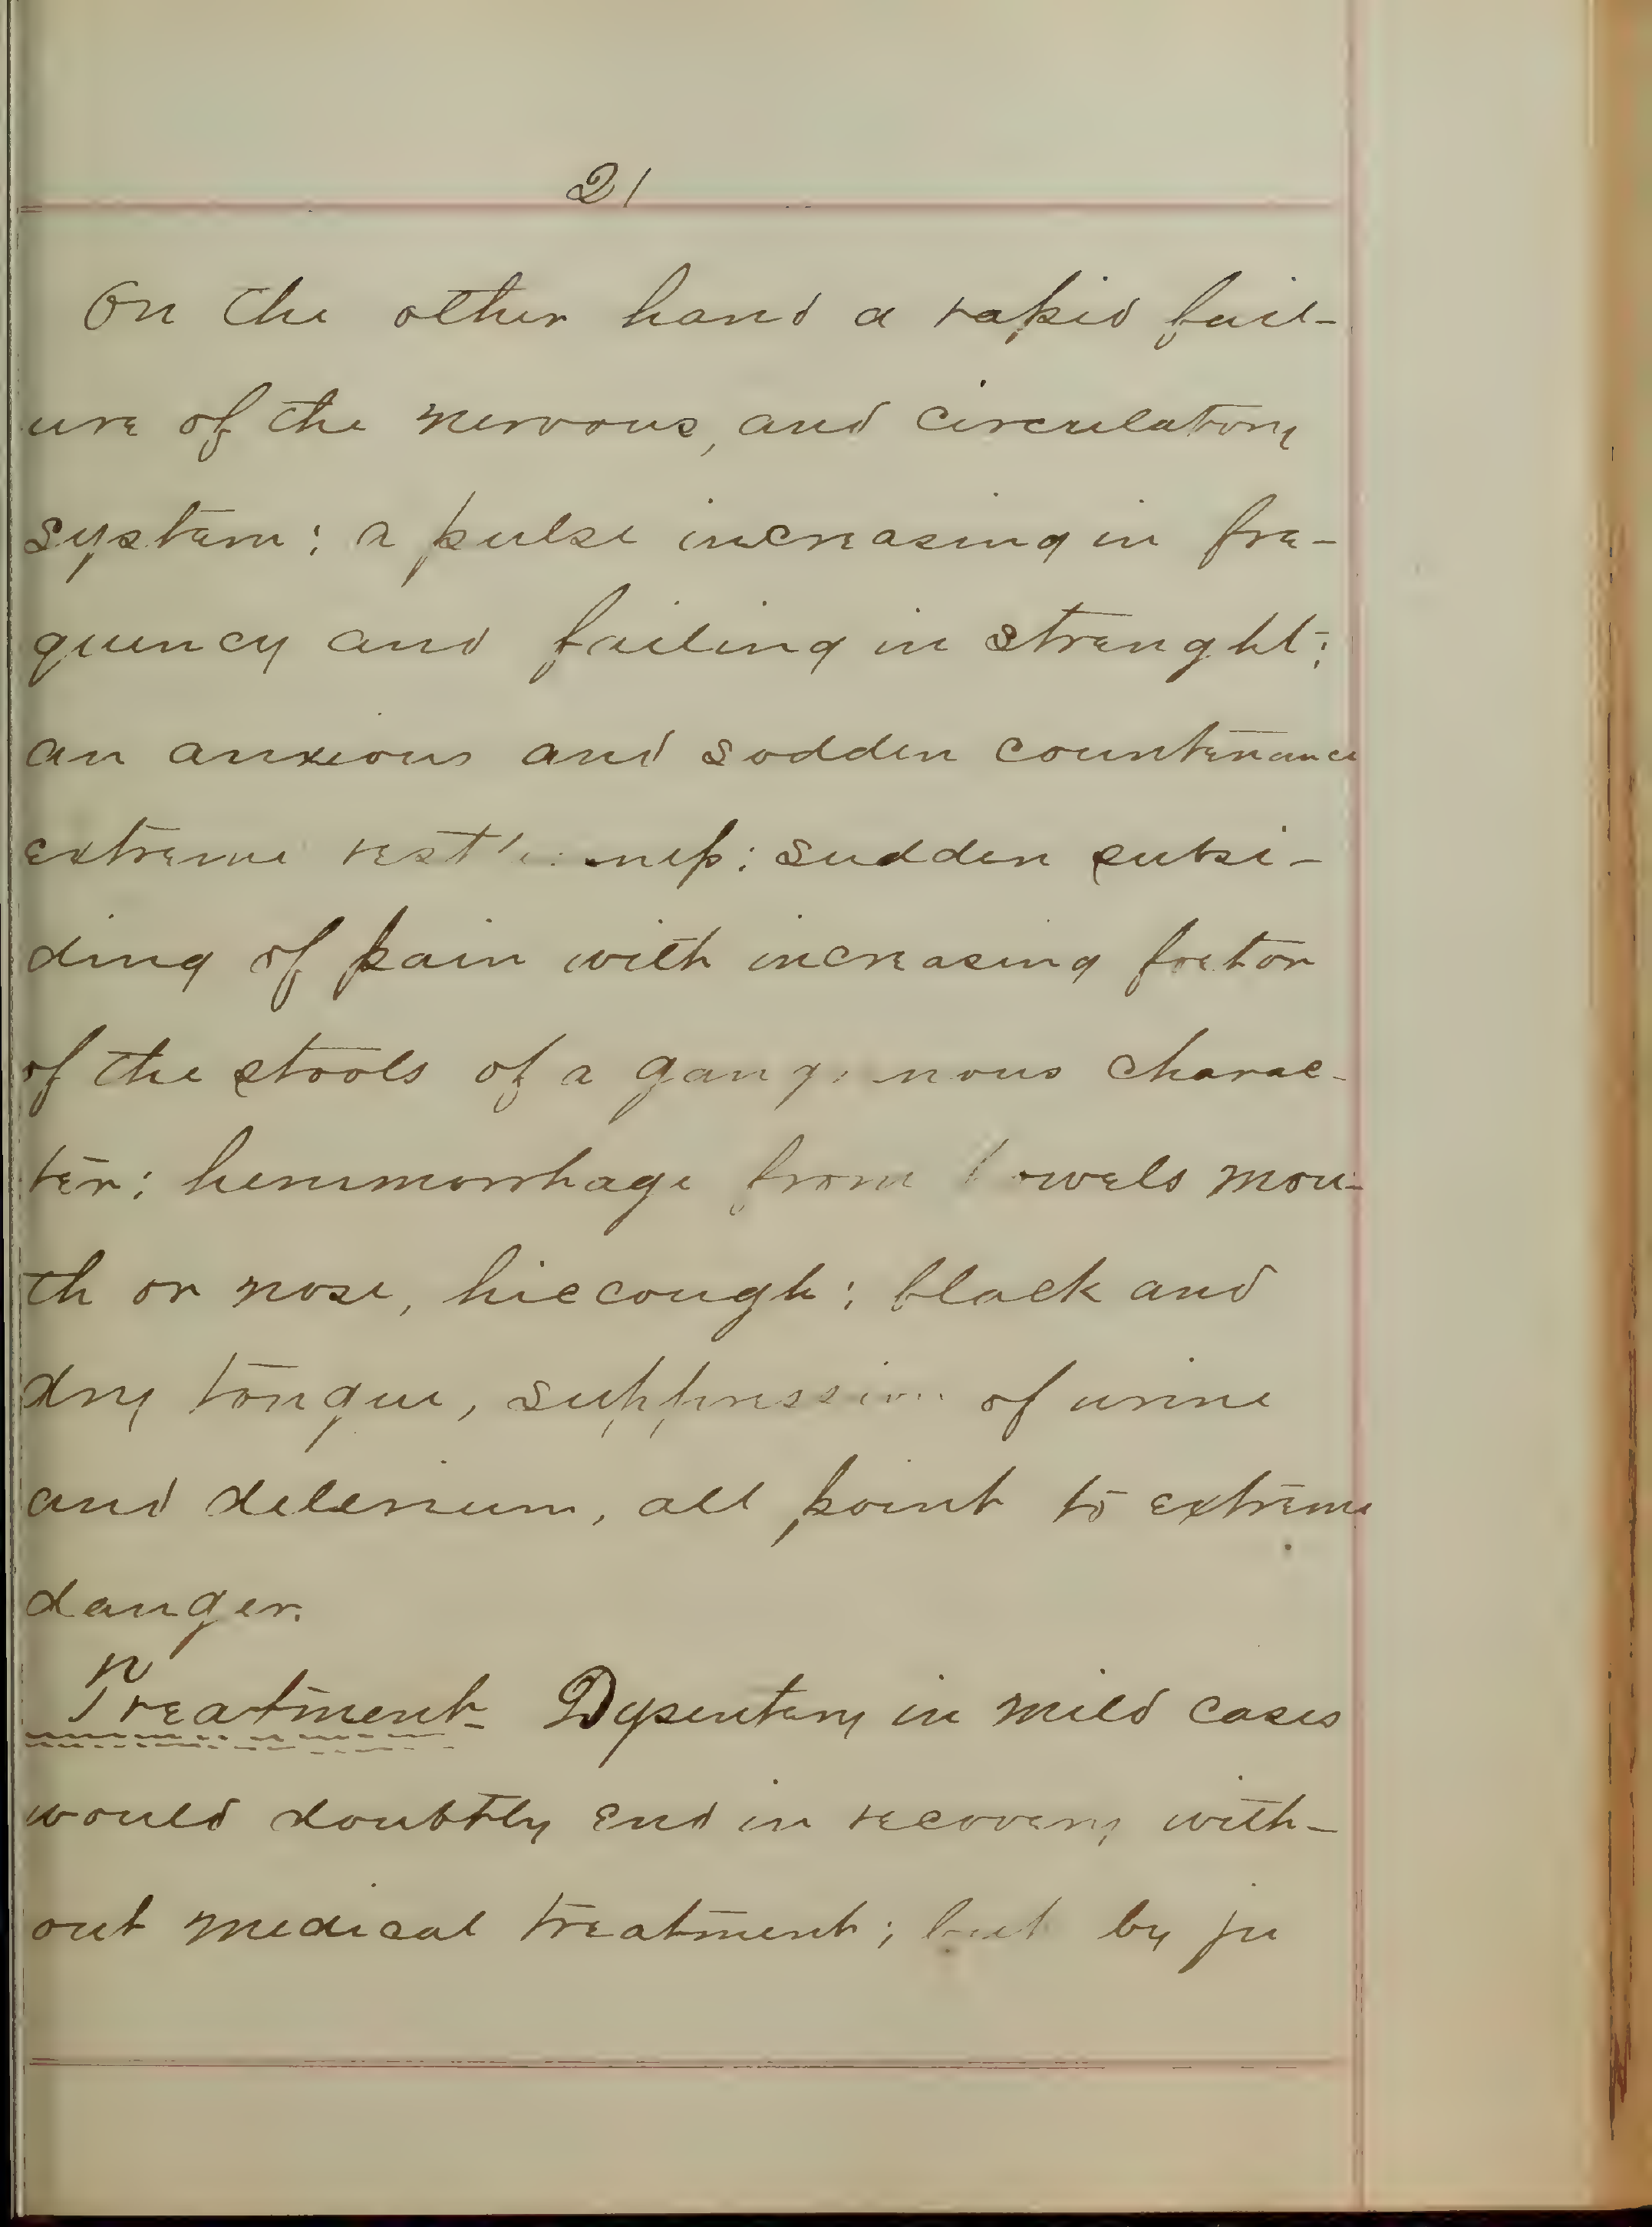 21
On the other hand a rapid fail-
ure of the nervous, and circulatory
system; a pulse increasing in fre-
quency and failing in strenght;
an anxious and sodden countenance
extreme restlessness; sudden subsi-
ding of pain with increasing foetor
of the stools of a gangrenous charac-
ter; hemmorrhage from bowels mou-
th or nose, hiccough; black and
dry tongue, suppression of urine
and delerium, all point to extreme
danger.
Treatment- Dysentery in mild cases
would doubtly end in recovery with-
out medical treatment; but by ju